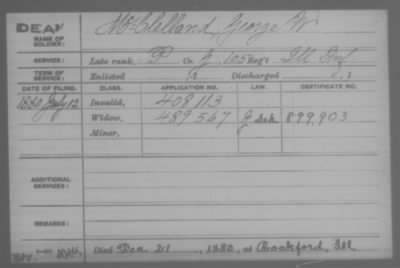 DEAD
NAME OF SOLDIER: McClelland, George W
SERVICE: Late rank, P Co. G, 105 Reg't Ill Inf
TERM OF SERVICE: Enlisted , 1 Discharged , 1
DATE OF FILING. CLASS. APPLICATION NO. LAW. CERTIFICATE NO.
1880 July 12 Invalid, 408 113
Widow, 489 567 899,903
Minor,
ADDITIONAL SERVICES:
REMARKS:
Died Dec 21, 1880, at Rockford, Ill